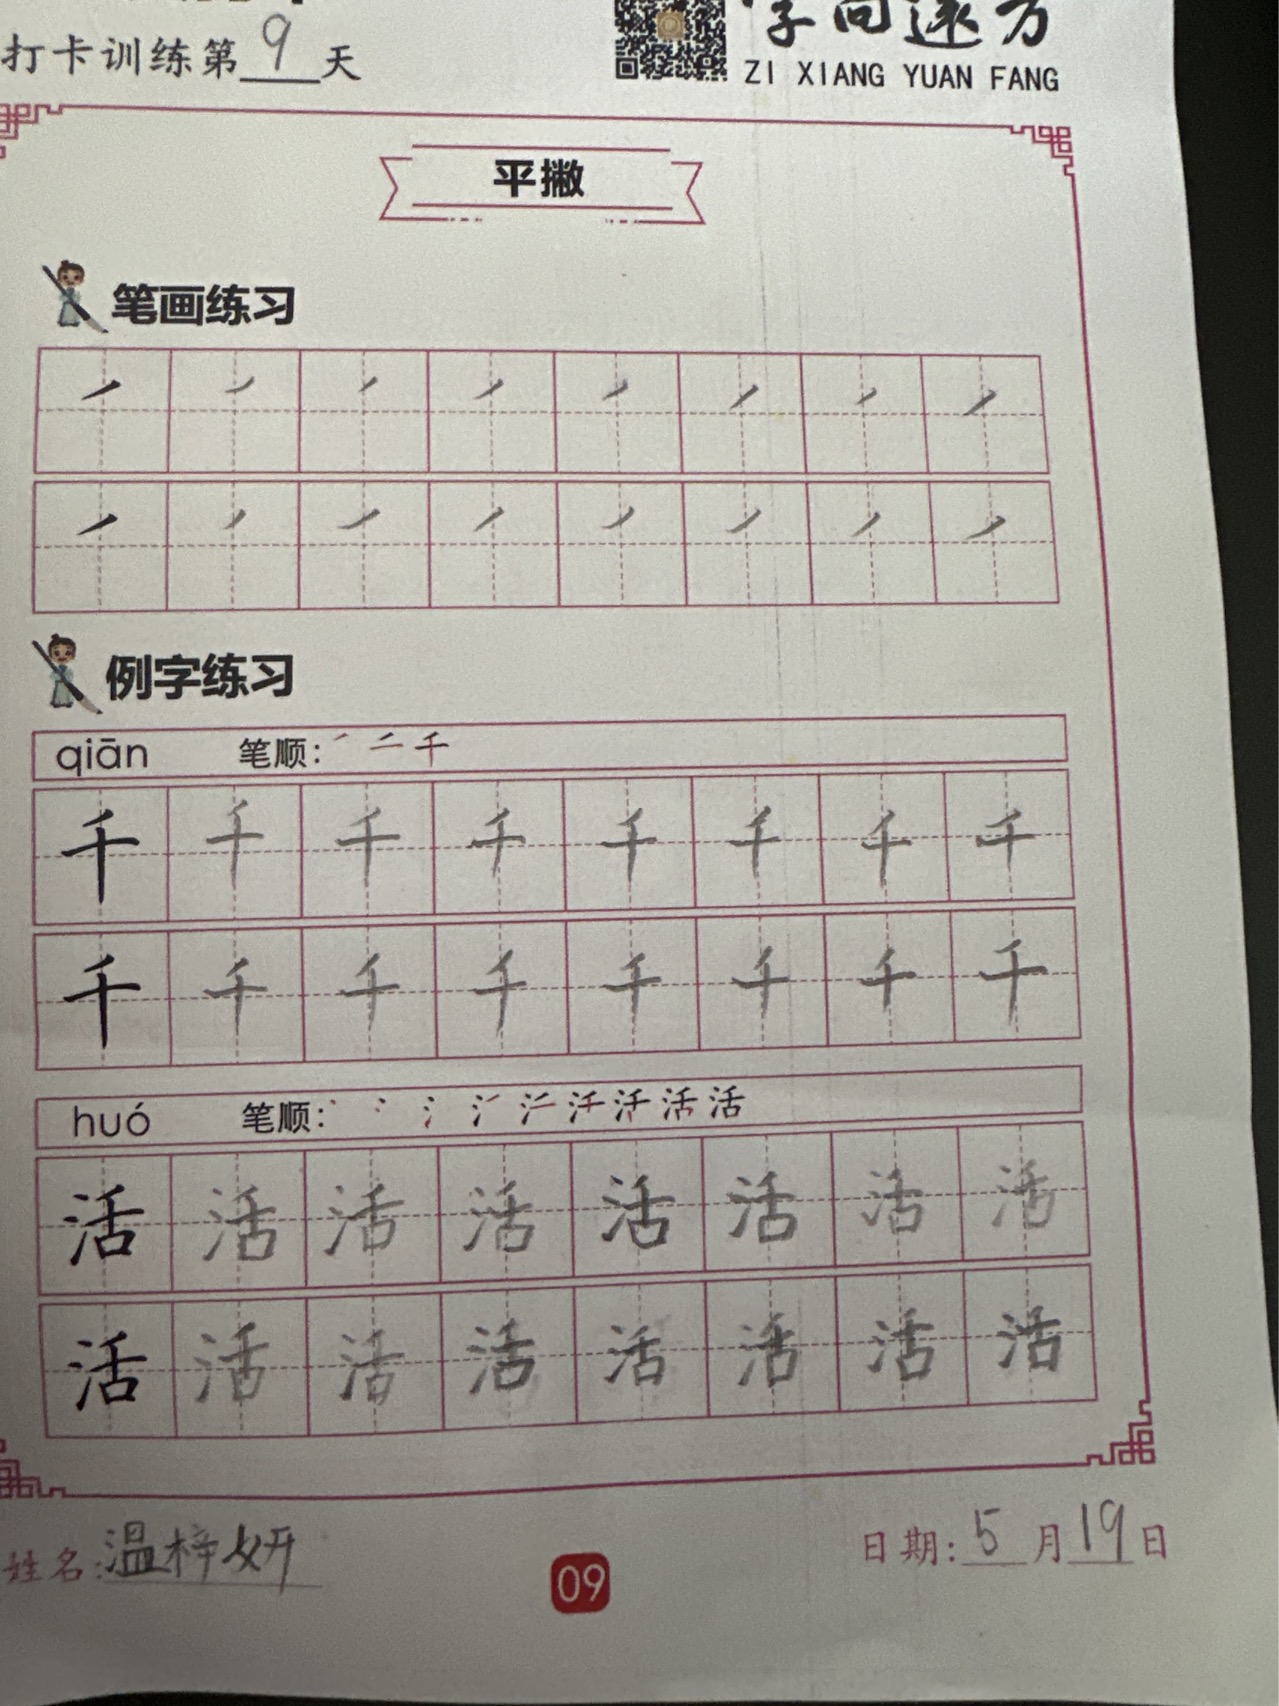 打卡训练第9天
字向远方
ZI XIANG YUAN FANG
平撇
笔画练习
例字练习
qiān 笔顺: 千
千 千 千 千 千 千 千 千
千 千 千 千 千 千 千 千
huó 笔顺: 活 活
活 活 活 活 活 活 活 活
活 活 活 活 活 活 活 活
姓名:温梓妍
09
日期:5月19日